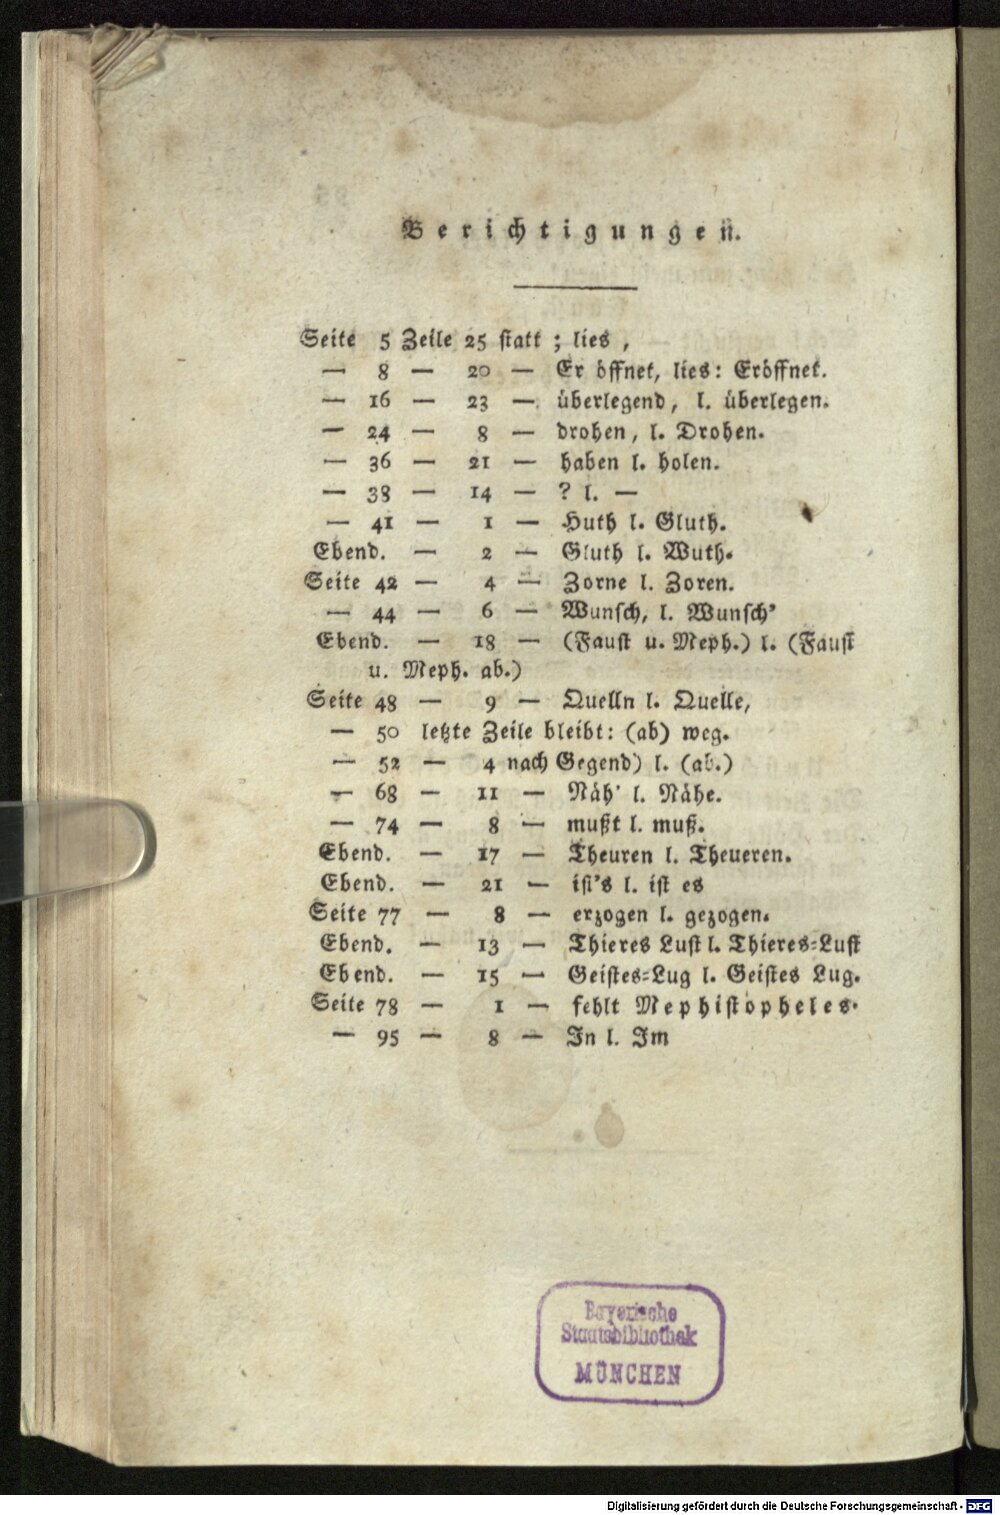 Berichtigungen.
Seite 5 Zeile 25 statt ; lies ,
— 8 — 20 — Er öffnet, lies: Eröffnet.
— 16 — 23 — überlegend, l. überlegen.
— 24 — 8 — drohen, l. Drohen.
— 36 — 21 — haben l. holen.
— 38 — 14 — ? l. —
— 41 — 1 — Huth l. Gluth.
Ebend. — 2 — Gluth l. Wuth.
Seite 42 — 4 — Zorne l. Zoren.
— 44 — 6 — Wunsch, l. Wunsch'
Ebend. — 18 — (Faust u. Meph.) l. (Faust
u. Meph. ab.)
Seite 48 — 9 — Quelln l. Quelle,
— 50 letzte Zeile bleibt: (ab) weg.
— 52 — 4 nach Gegend) l. (ab.)
— 68 — 11 — Näh' l. Nähe.
— 74 — 8 — mußt l. muß.
Ebend. — 17 — Theuren l. Theueren.
Ebend. — 21 — ist's l. ist es
Seite 77 — 8 — erzogen l. gezogen.
Ebend. — 13 — Thieres Lust l. Thieres-Lust
Ebend. — 15 — Geistes-Lug l. Geistes Lug.
Seite 78 — 1 — fehlt Mephistopheles.
— 95 — 8 — In l. Im
Bayerische
Staatsbibliothek
MÜNCHEN
Digitalisierung gefördert durch die Deutsche Forschungsgemeinschaft - DFG